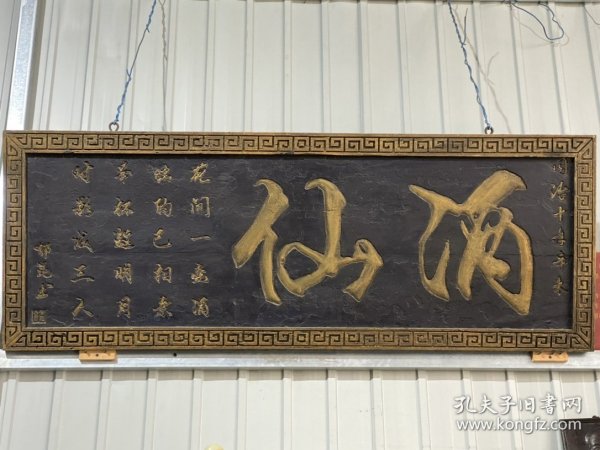 酒仙
同治十年辛未
花间一壶酒
独酌无相亲
举杯邀明月
对影成三人
孔夫子旧书网
www.kongfz.com